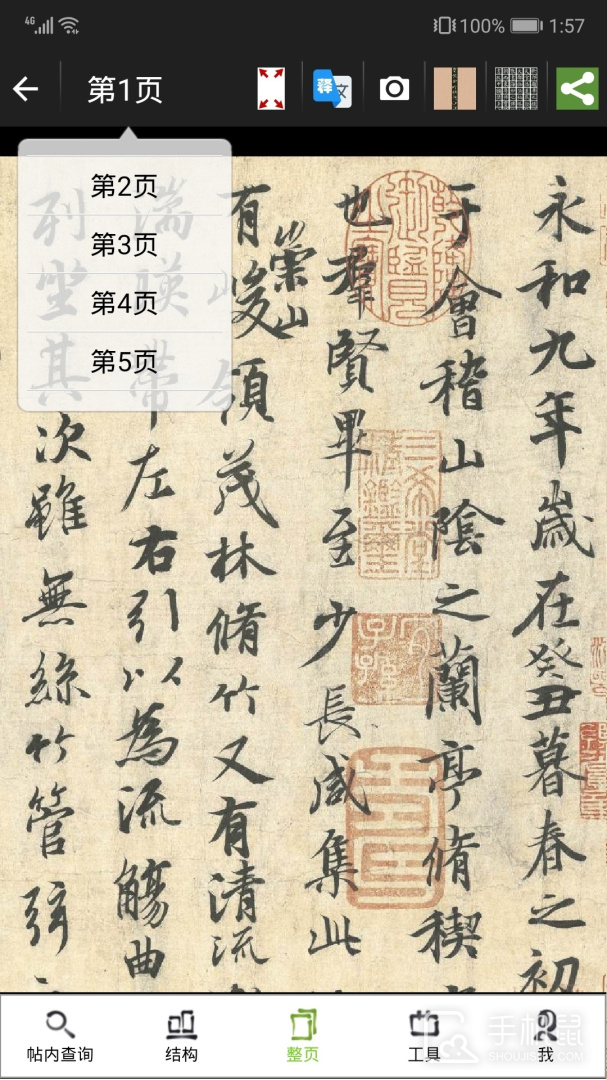 4G
100%
1:57
第1页
释
文
第2页
第3页
第4页
第5页
永和九年歲在癸丑暮春之初
于會稽山陰之蘭亭脩禊
也羣賢畢至少長咸集此
有崇山峻領茂林脩竹又有清流
湍暎帶左右引以為流觴曲
列坐其次雖無絲竹管弦
三希堂精鑑璽
宜子孫
帖内查询
结构
整页
工具
我
手机鼠
SHOUJISHU.COM